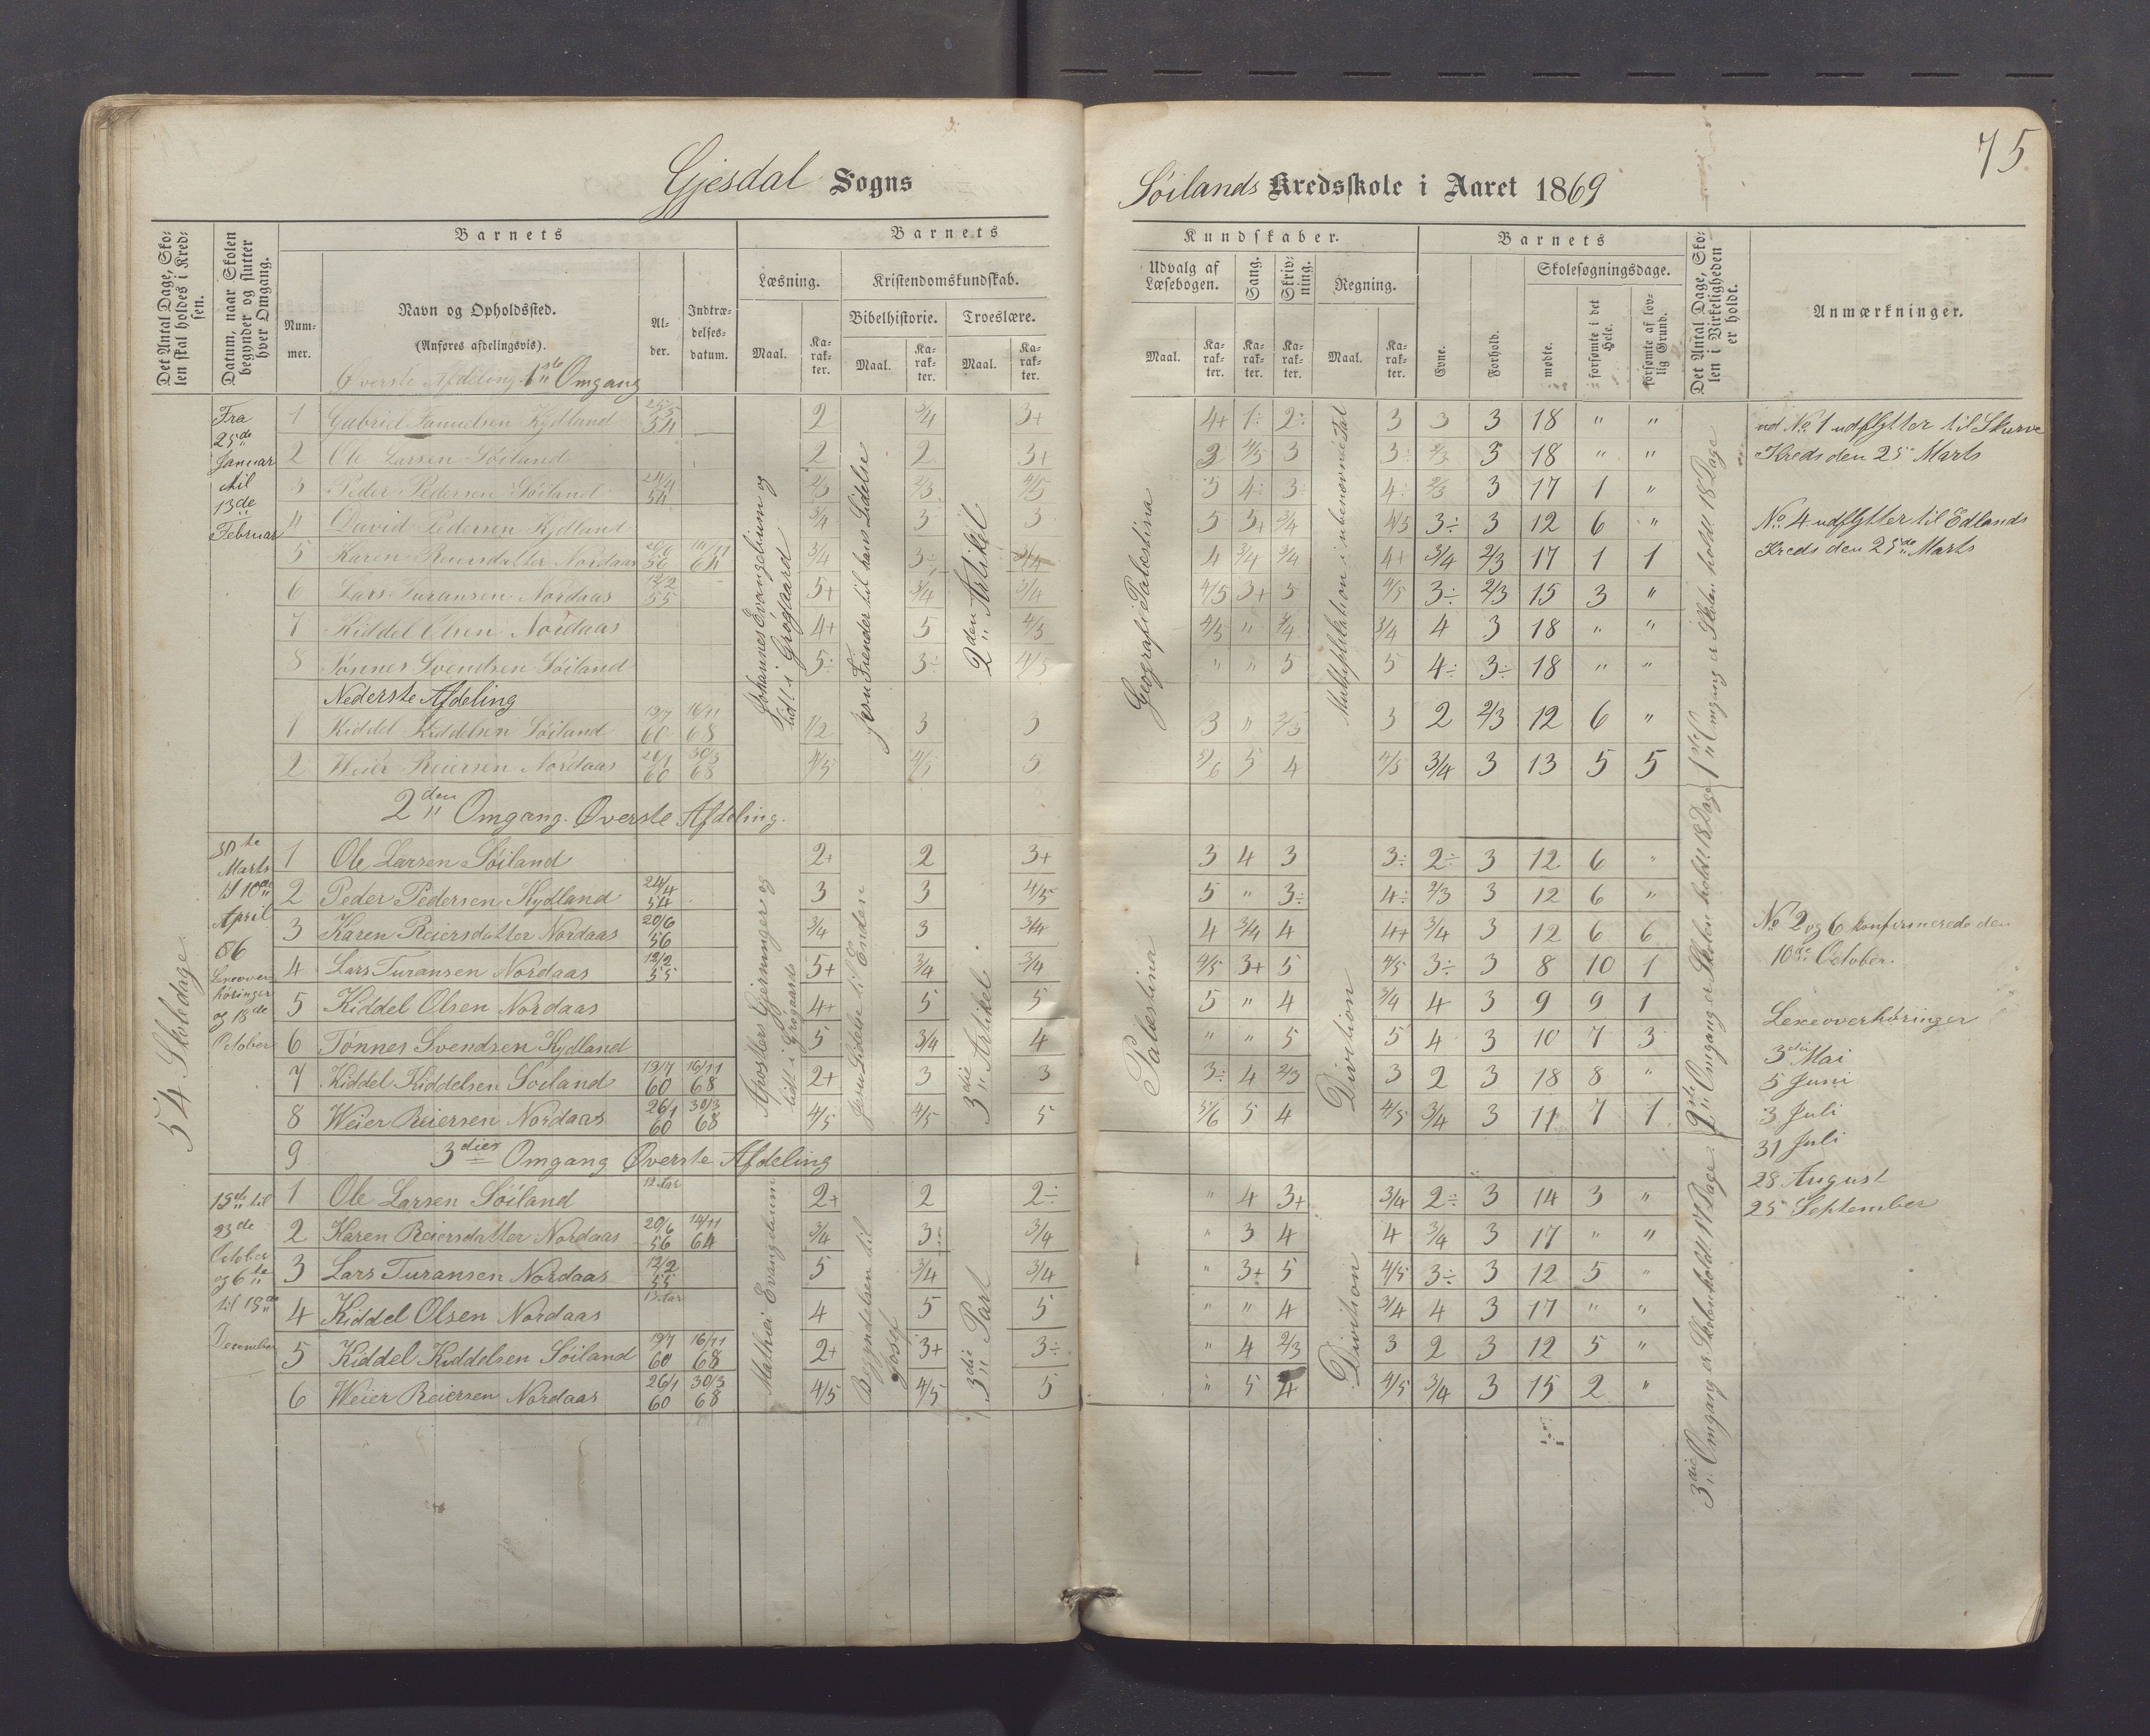 75
Gjesdal Sogns
Søilands Kredsskole i Aaret 1869
Det Antal Dage, Skolen skal holdes i Kredsen.
Datum, naar Skolen begynder og slutter hver Omgang.
Barnets
Nummer.
Navn og Opholdssted.
(Anføres afdelingsvis).
Alder.
Indtrædelsesdatum.
Barnets
Læsning.
Maal.
Karakter.
Kristendomskundskab.
Bibelhistorie.
Maal.
Karakter.
Troeslære.
Maal.
Karakter.
Kundskaber.
Udvalg af Læsebogen.
Maal.
Karakter.
Sang.
Karakter.
Skrivning.
Karakter.
Regning.
Maal.
Karakter.
Barnets
Evne.
Forhold.
Skolesøgningsdage.
mødte.
forsømte i det Hele.
forsømte af lovlig Grund.
Det Antal Dage, Skolen i Virkeligheden er holdt.
Anmærkninger.
54 Skoledage
Øverste Afdeling 1ste Omgang
Fra 25de Januar til 13de Februar
Johannes Evangelium og lidt i Grøgaard
Jesu Fiender til hans Lidelse
2den Artikel
Geografi Palæstina
Multiplikation i ubenævnte Tal
1ste Omgang er Skolen holdt 18 Dage
1 Gabriel Samuelsen Kydland 25/5 54 2 3/4 3+ 4+ 1÷ 2÷ 3 3 3 18 " "
2 Ole Larsen Søiland 2 2 3+ 3 4/5 3 3÷ 2/3 3 18 " "
3 Peder Pedersen Søiland 24/4 54 2/3 2/3 4/5 5 4÷ 3÷ 4÷ 2/3 3 17 1 "
4 David Pedersen Kydland 3/4 3 3 5 3+ 3/4 4/5 3÷ 3 12 6 "
5 Karen Reiersdatter Nordaas 20/6 56 14/11 64 3/4 3÷ 3/4 4 3/4 3/4 4+ 3/4 2/3 17 1 1
6 Lars Turansen Nordaas 12/2 55 5+ 3/4 3/4 4/5 3+ 5 4/5 3÷ 2/3 15 3 "
7 Kiddel Olsen Nordaas 4+ 5 4/5 4/5 " 3/4 3/4 4 3 18 " "
8 Tønnes Svendsen Søiland 5÷ 3÷ 4/5 " " 5 5 4÷ 3÷ 18 " "
Nederste Afdeling
1 Kiddel Kiddelsen Søiland 19/7 60 16/11 68 1/2 3 3 3 " 2/3 3 2 2/3 12 6 "
2 Weier Reiersen Nordaas 26/1 60 30/3 68 4/5 4/5 5 5/6 5 4 4/5 3/4 3 13 5 5
ad No 1 udflytter til Skurve
Kreds den 25de Marts
No 4 udflytter til Edlands
Kreds den 25de Marts
2den Omgang. Øverste Afdeling.
30te Marts til 10de April
Lexeoverhøringer og 18de October
Apostlers Gjerninger og lidt i Grøgaards
Jesu Lidelse til Enden
3die Artikel
Palæstina
Division
2den Omgang er Skolen holdt 18 Dage
1 Ole Larsen Søiland 2+ 2 3+ 3 4 3 3÷ 2÷ 3 12 6 "
2 Peder Pedersen Kydland 24/4 54 3 3 4/5 5 " 3÷ 4÷ 2/3 3 12 6 "
3 Karen Reiersdatter Nordaas 20/6 56 3/4 3 3/4 4 3/4 4 4+ 3/4 3 12 6 6
4 Lars Turansen Nordaas 12/2 55 5+ 3/4 3/4 4/5 3+ 5 4/5 3÷ 3 8 10 1
5 Kiddel Olsen Nordaas 4+ 5 5 5 " 4 3/4 4 3 9 9 1
6 Tønnes Svendsen Kydland 5 3/4 4 " " 5 5 4 3 10 7 3
7 Kiddel Kiddelsen Søiland 19/7 60 16/11 68 2+ 3 3 3÷ 4 2/3 3 2 3 18 8 "
8 Weier Reiersen Nordaas 26/1 60 30/3 68 4/5 4/5 5 5/6 5 4 4/5 3/4 3 11 7 1
No 2 og 6 konfirmerede den
10de October.
Lexeoverhøringer
3die Mai
5 Juni
3 Juli
31 Juli
28 August
25 September
9 3dies Omgang Øverste Afdeling
til 23de October og 6te til December
Mathæi Evangelium
Begyndelsen til Josef
3die Part
Division
3die Omgang er Skolen holdt 17 Dage.
1 Ole Larsen Søiland 2+ 2 2÷ " 4 3+ 3/4 2÷ 3 14 3 "
2 Karen Reiersdatter Nordaas 20/6 56 14/11 64 3/4 3÷ 3/4 " 3 4 4 3/4 3 17 " "
3 Lars Turansen Nordaas 12/2 55 5 3/4 3/4 " 3+ 5 4/5 3÷ 3 12 5 "
4 Kiddel Olsen Nordaas 4 5 5 " " 4 3/4 4 3 17 " "
5 Kiddel Kiddelsen Søiland 19/7 60 16/11 68 2+ 3+ 3÷ " 4 2/3 3 2 3 12 5 "
6 Weier Reiersen Nordaas 26/1 60 30/3 68 4/5 4/5 5 " 5 4 4/5 3/4 3 15 2 "